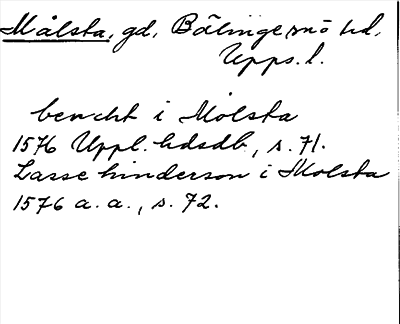 Målsta, gd, Bälinge snö hd,
Upps. l.
bencht i Molsta
1576 Uppl. hdsdb, s. 71.
Lasse hinderson i Molsta
1576 a. a., s. 72.